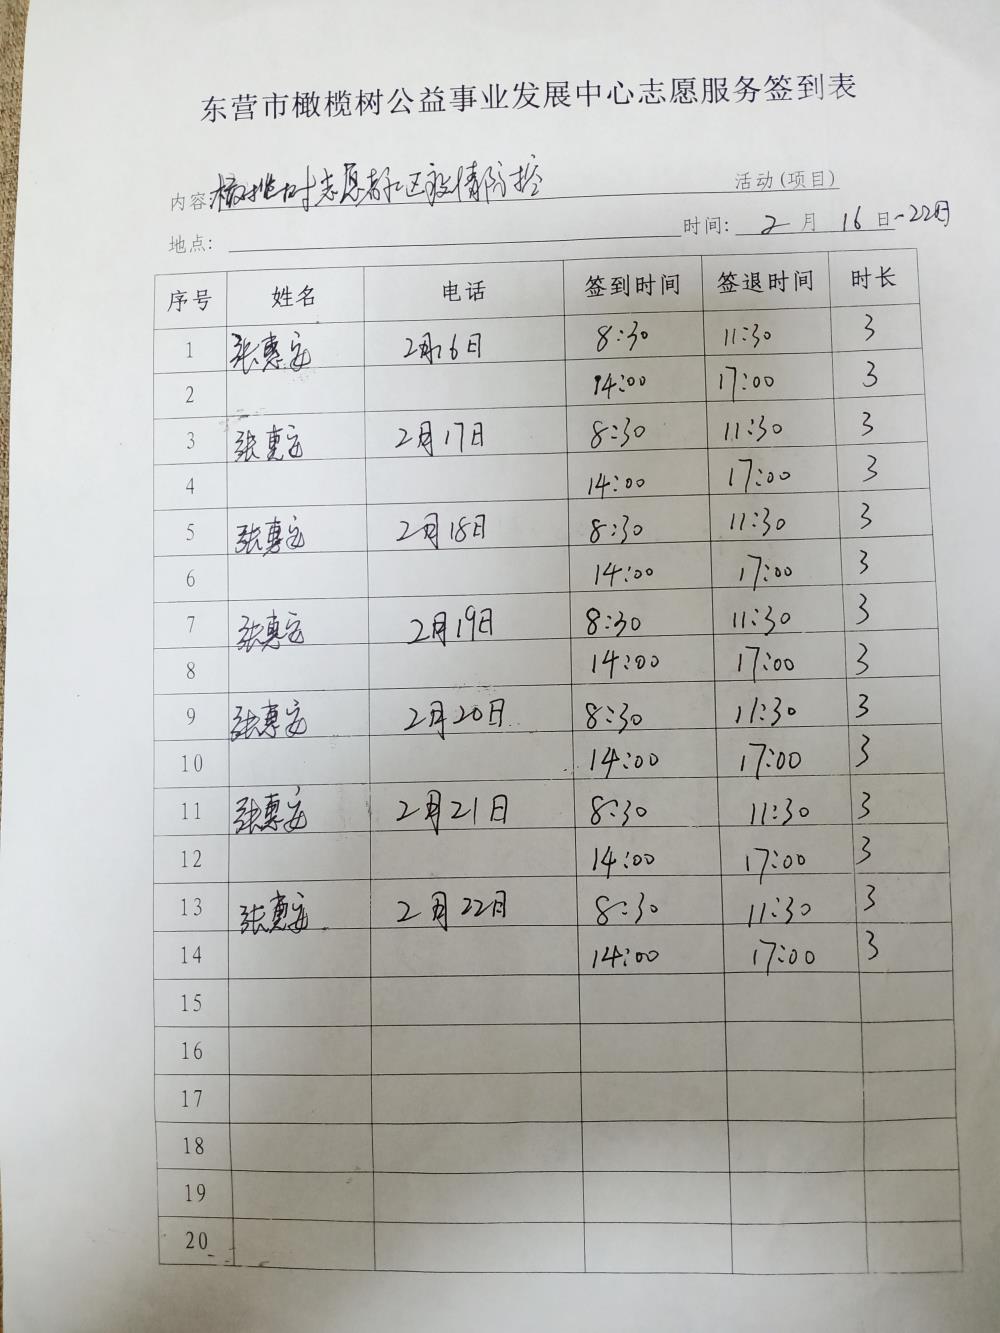 东营市橄榄树公益事业发展中心志愿服务签到表
内容 橄榄树志愿者社区疫情防控 活动(项目)
地点: 时间: 2 月 16 日-22日
序号 姓名 电话 签到时间 签退时间 时长
1 张惠安 2月16日 8:30 11:30 3
2 14:00 17:00 3
3 张惠安 2月17日 8:30 11:30 3
4 14:00 17:00 3
5 张惠安 2月18日 8:30 11:30 3
6 14:00 17:00 3
7 张惠安 2月19日 8:30 11:30 3
8 14:00 17:00 3
9 张惠安 2月20日 8:30 11:30 3
10 14:00 17:00 3
11 张惠安 2月21日 8:30 11:30 3
12 14:00 17:00 3
13 张惠安 2月22日 8:30 11:30 3
14 14:00 17:00 3
15
16
17
18
19
20